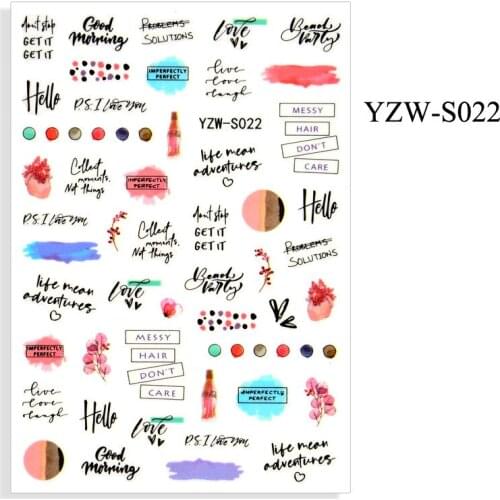 don't stop
GET IT
GET IT
Good
Morning
PROBLEMS
SOLUTIONS
love
Beach
Party
IMPERFECTLY
PERFECT
live
love
laugh
Hello
P.S. I Love you
YZW-S022
MESSY
HAIR
DON'T
CARE
YZW-S022
Collect
moments,
Not things
IMPERFECTLY
PERFECT
life mean
adventures
P.S. I Love you
Collect
moments,
Not things
don't stop
GET IT
GET IT
Hello
PROBLEMS
SOLUTIONS
life mean
adventures
love
Beach
Party
IMPERFECTLY
PERFECT
MESSY
HAIR
DON'T
CARE
live
love
laugh
Hello
love
IMPERFECTLY
PERFECT
Good
Morning
P.S. I Love you
life mean
adventures